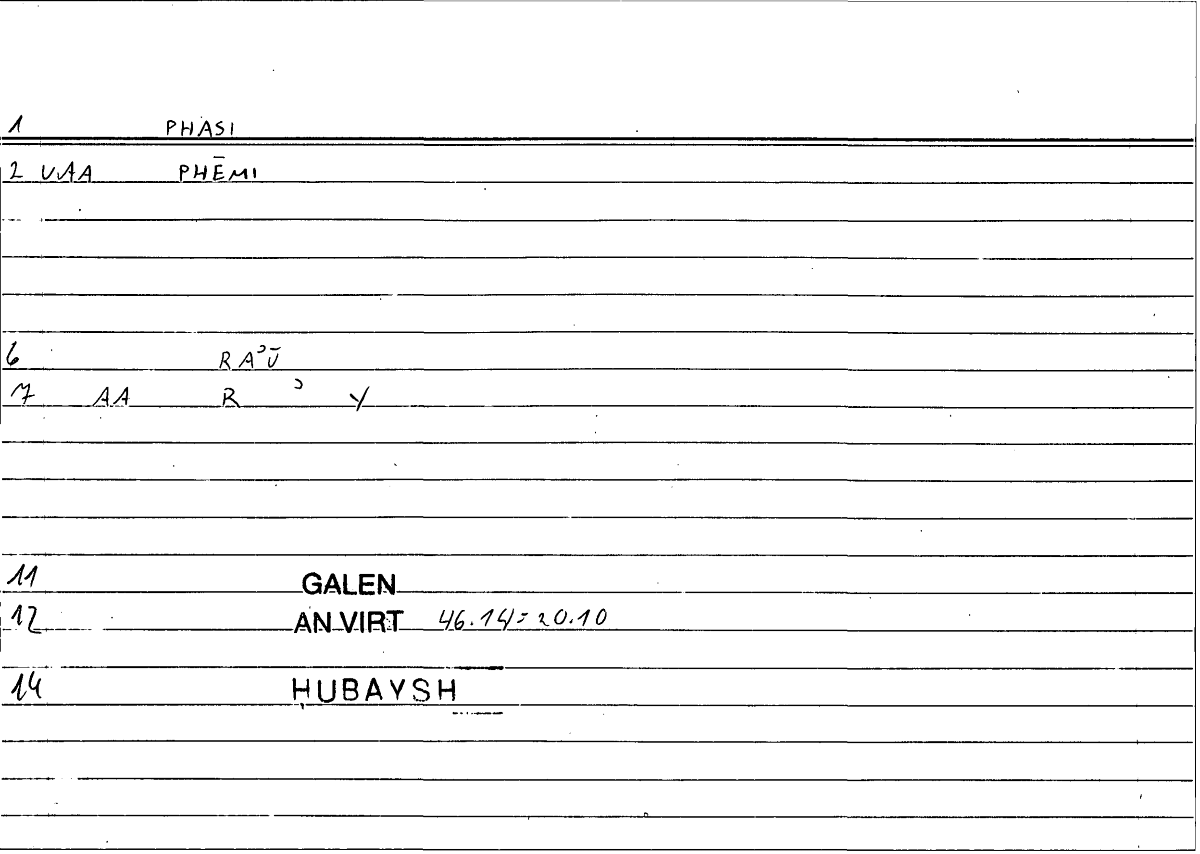 1 PHASI
2 VAA PHĒMI
6 RAʾŪ
7 AA R ʾ Y
11 GALEN
12 AN VIRT 46.14=20.10
14 ḤUBAYSH